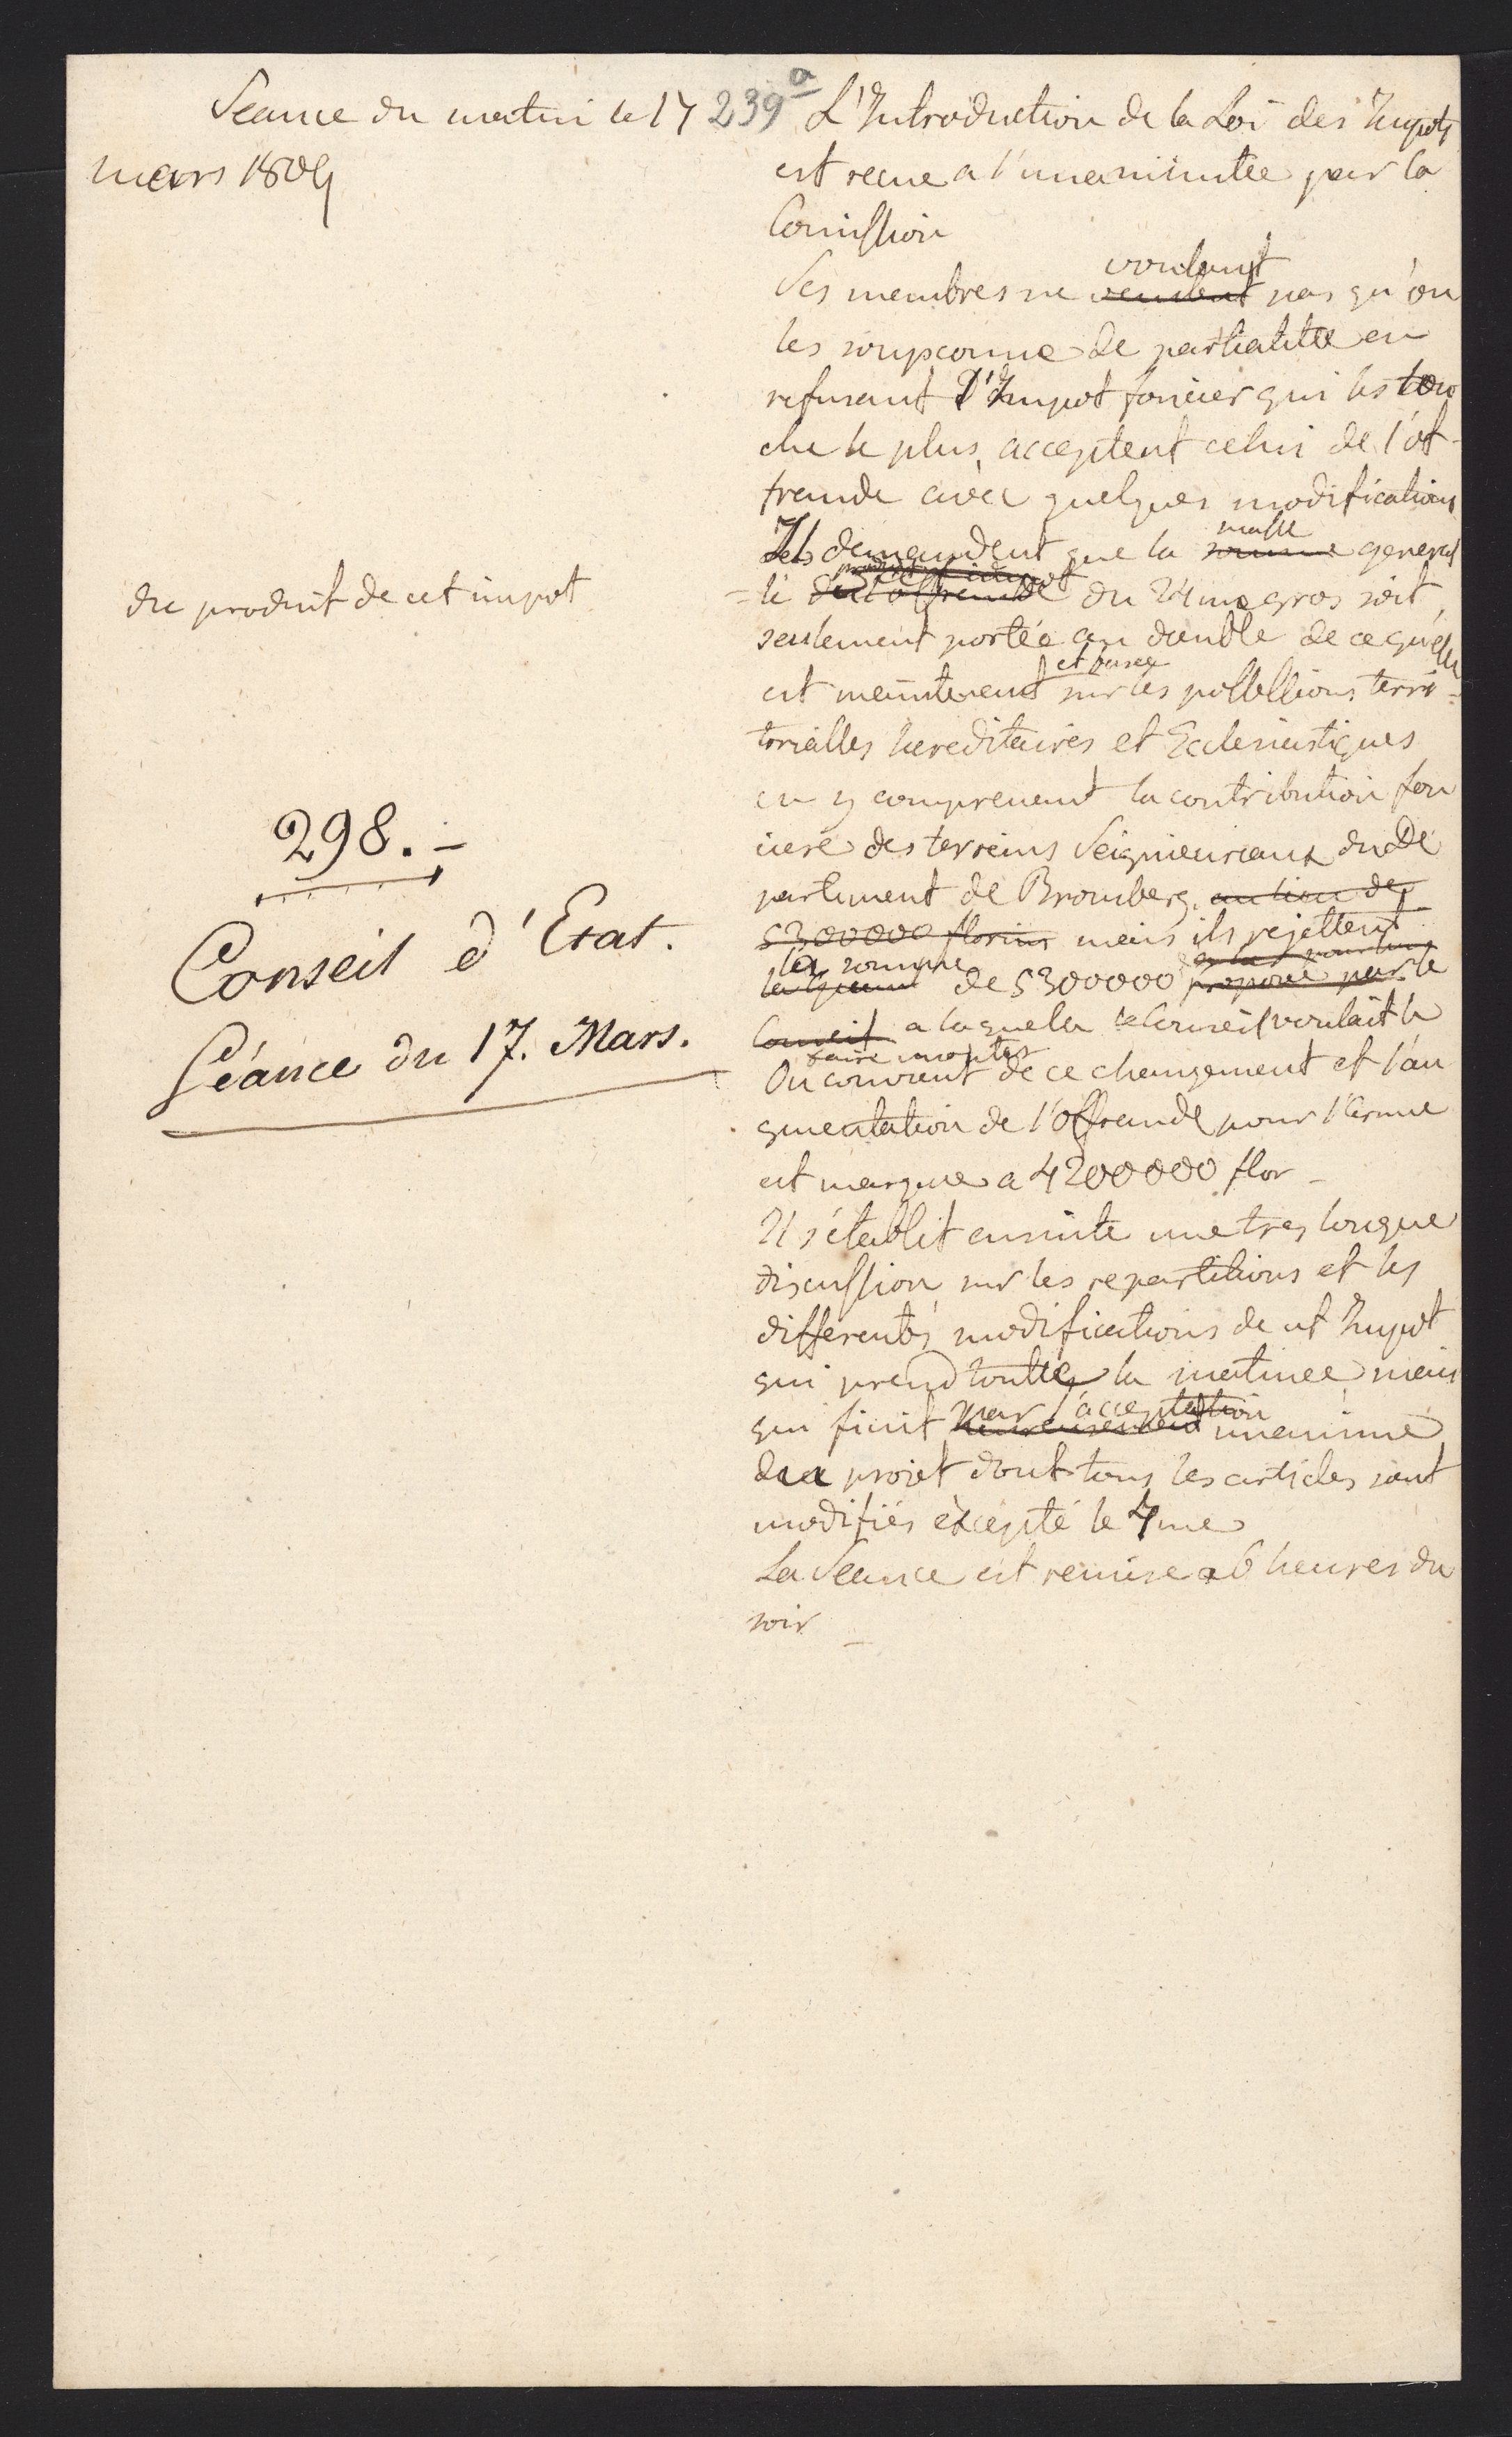 Seance du matin le 17
mars 1809
239a
du produit de cet impot
298.-
Conseil d'Etat.
Séance du 17. Mars.
L'Introduction de la Loi des Impots
est recue a l'unanimitée par la
Comission
Ses membres ne voulant veulent pas qu'on
les soupconne de partialitée en
refusant l'Impot foncier qui les tou
che le plus, acceptent celui de l'of-
frande avec quelques modifications
Ils demandent que la masse somme general
=le de l'offrande du 24me gros soit
seulement portée au double de ce qu'elle
est maintenant et basee sur les possessions terri=
torialles hereditaires et Ecclesiastiques
en y comprenant la contribution fon
ciere des terreins Seigneuriaux du De
partement de Bromberg. au lieu de
5300000 florins mais ils rejettent
la somme de 5300000 proposée par le
Conseil a laquelle le Conseil voulait la
faire monter
On convient de ce changement et l'au
gmentation de l'Offrande pour l'Armee
est marquee a 4200000 flor -
Il s'établit ensuite une tres longue
discussion sur les repartitions et les
differentes modifications de cet Impot
qui prend toutte la matinee mais
qui finit par l'acceptation heureusement unanime
du projet dont tous les articles sont
modifiés éxcépté le 7me
La Seance est remise a 6 heures du
soir -